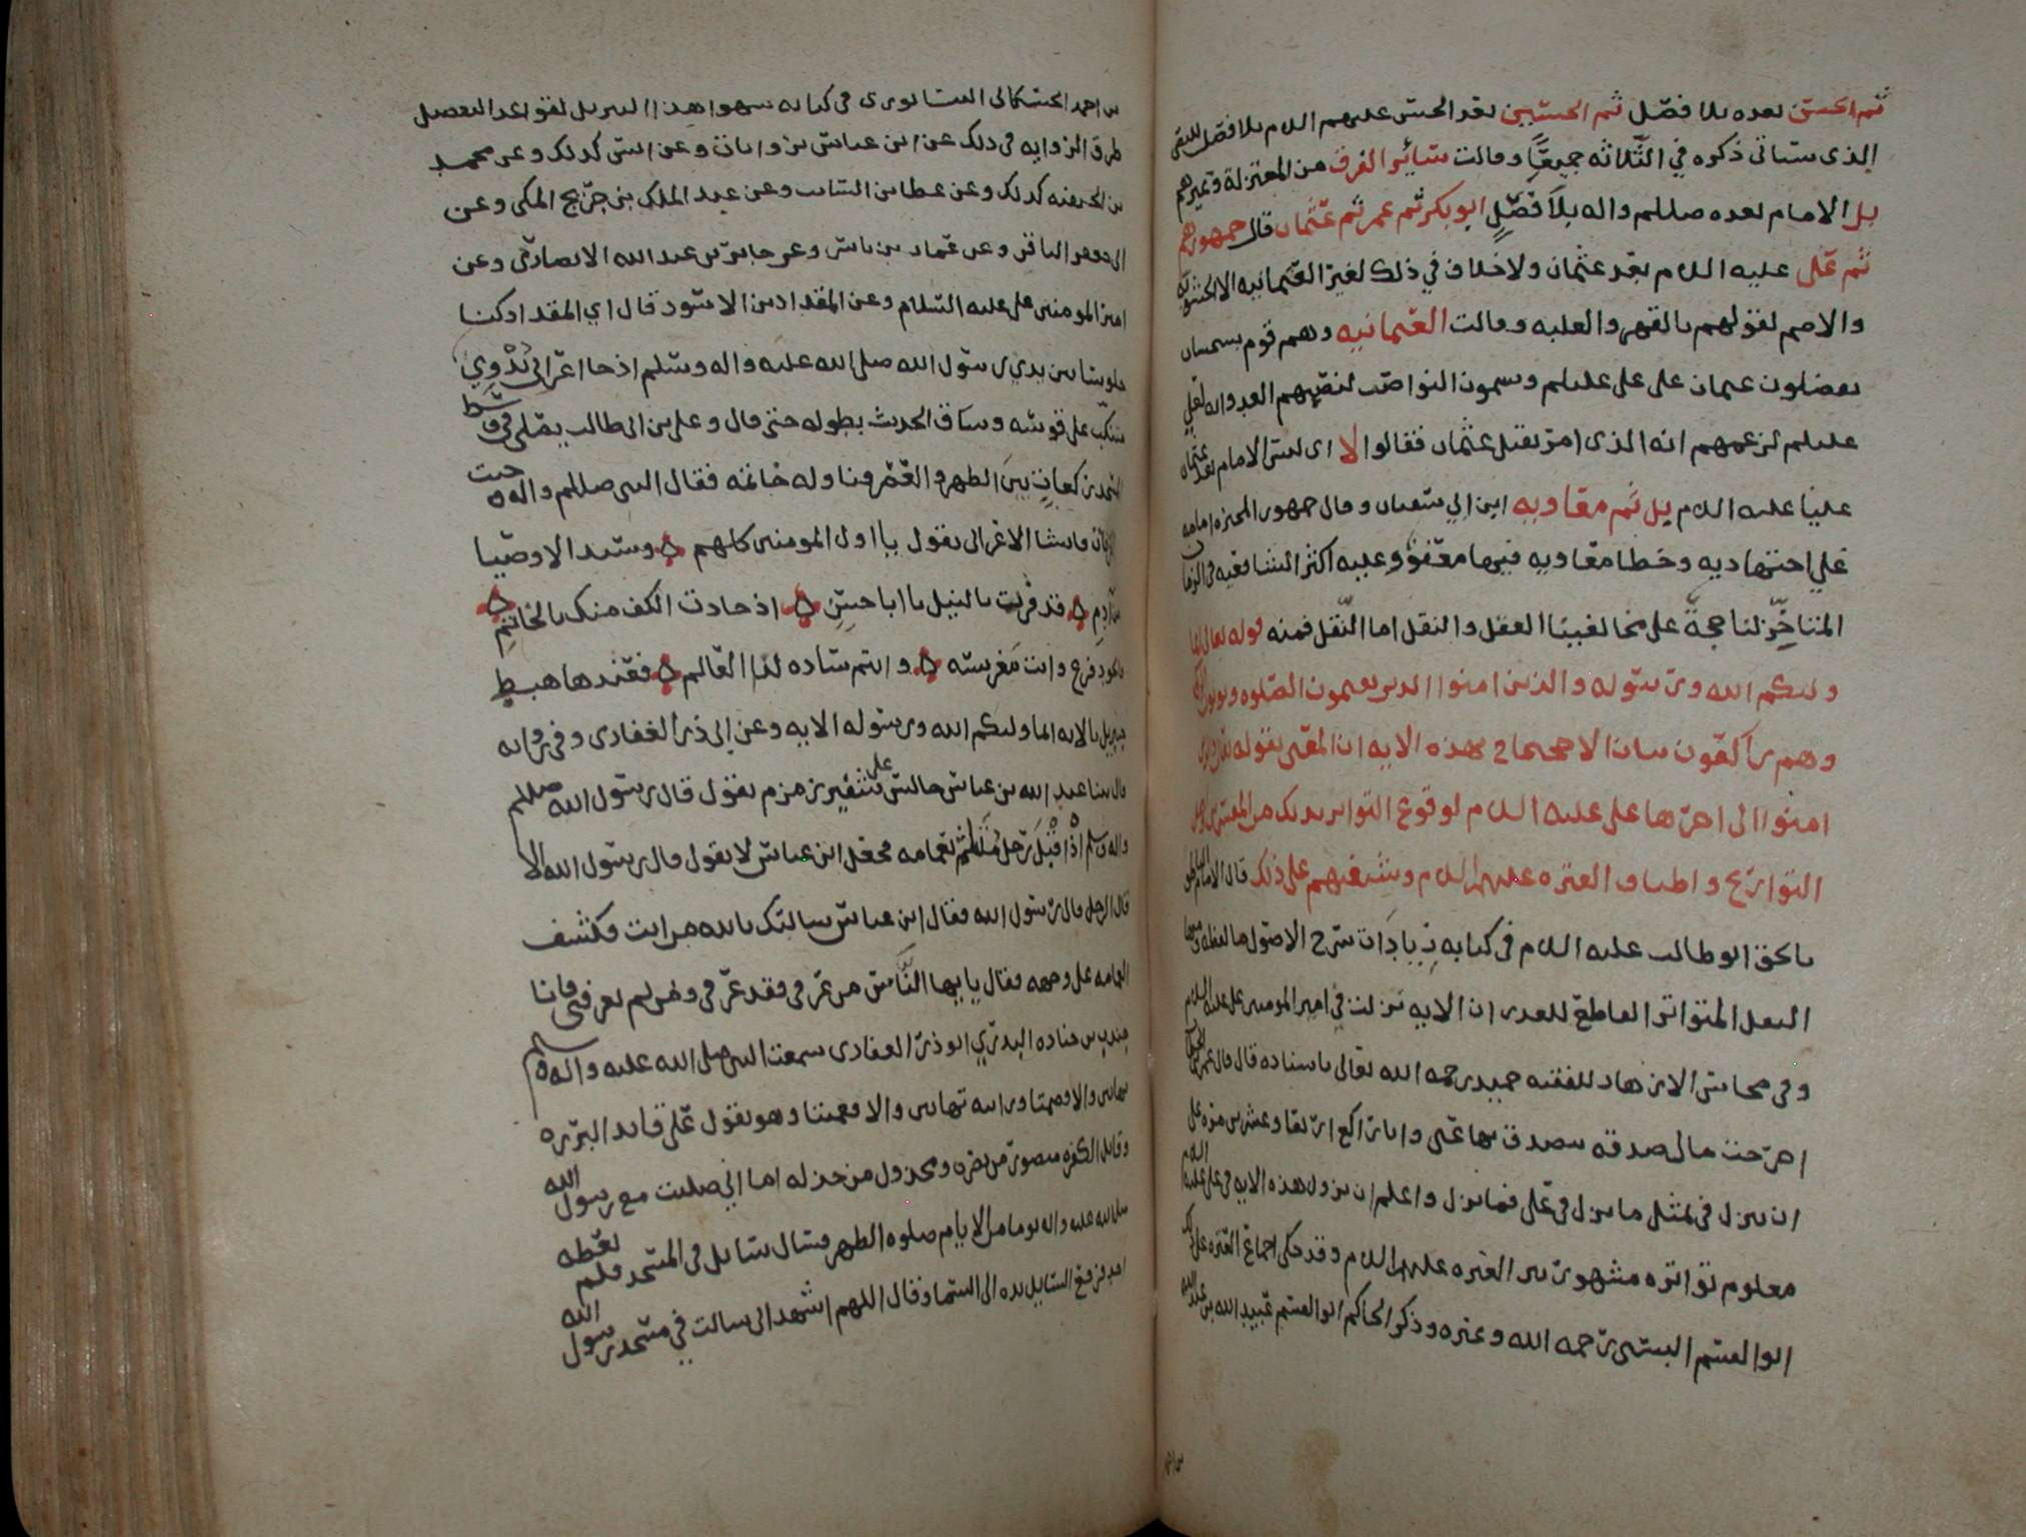 ثم الحسن بعده بلا فصل ثم الحسين بعد الحسن عليهم السلام بلا فصل للنص
الذي سياتي ذكره في الثلاثه جميعًا وقالت سائر الفرق من المعتزلة وغيرهم
بل الامام بعده صللم واله بلا فصلٍ ابو بكر ثم عمر ثم عثمان قال جمهورهم
ثم علي عليه السلام بعد عثمان ولا خلاف في ذلك لغير العثمانيه الا الحشويه
والاصم لقولهم بالقهر والغلبه وقالت العثمانيه وهم قوم
يفضلون عثمان على علي عليلم ويسمون النواصب لنصبهم العداوه لعلي
عليلم لزعمهم انه الذي امر بقتل عثمان فقالوا لا اي ليس الامام بعد عثمان
عليا عليه السلام بل ثم معاويه ابن ابي سفيان وقال جمهور المجبره امامه
علي اجتهاديه وخطا معاويه فيها معفو وعليه اكثر الشافعيه في الزمان
المتاخر لنا حجة على مخالفينا العقل والنقل اما النقل فمنه قوله تعالى انما
وليكم الله ورسوله والذين امنوا الذين يقيمون الصلوه ويوتون الزكوه
وهم راكعون بيان الاحتجاج بهذه الايه ان المعني بقوله تعالى والذين
امنوا الى اخرها علي عليه السلام لوقوع التواتر بذلك من المفسرين واهل
التواريخ واطباق العتره عليهم السلام وشيعتهم على ذلك قال الامام الناطق
بالحق ابو طالب عليه السلام في كتابه زيادات شرح الاصول ما لفظه ومنها
النقل المتواتر القاطع للعذر ان الايه نزلت في امير المومنين علي عليه السلام
وفي محاسن الازهار للفقيه حميد رحمه الله تعالى باسناده قال قال عمر بن الخطاب
اخرجت من مالي صدقه يتصدق بها عني وانا راكع اربعا وعشرين مره على
ان ينزل في مثل ما نزل في علي فما نزل واعلم ان نزول هذه الايه في علي عليه السلام
معلوم تواتره مشهور بين العتره عليهم السلام وقد حكى اجماع العتره على ذلك
ابو القسم البستي رحمه الله وغيره وذكر الحاكم ابو القسم عبيد الله بن عبد الله
بن احمد
بن احمد الحسكاني النيسابوري في كتابه شواهد التنزيل لقواعد التفضيل
طرق الروايه في ذلك عن ابن عباس بن واذان وعن انس كذلك وعن محمد
بن الحنفيه كذلك وعن عطا بن السائب وعن عبد الملك بن جريج المكي وعن
ابي جعفر الباقر وعن عمار بن ياسر وعن جابر بن عبد الله الانصاري وعن
امير المومنين علي عليه السلام وعن المقداد بن الاسود قال اي المقداد كنا
جلوسا بين يدي رسول الله صلى الله عليه واله وسلم اذ جا اعرابي بدوي
متنكب على قوسه وساق الحديث بطوله حتى قال وعلي بن ابي طالب يصلي في وسط
المسجد ركعات بين الظهر والعصر فناوله خاتمه فقال النبي صللم واله وجبت
الغرفات فانشا الاعرابي يقول يا اول المومنين كلهم ۞ وسيد الاوصيا
من ادم ۞ قد فزت بالنيل يا ابا حسن ۞ اذ جادت الكف منك بالخاتم ۞
فالجود فرع وانت مغرسه ۞ وانتم ساده لذا العالم ۞ فعندها هبط
جبريل بالايه انما وليكم الله ورسوله الايه وعن ابي ذر الغفاري وفي روايه
قال بينا عبد الله بن عباس جالس على شفير زمزم يقول قال رسول الله صللم
واله وسلم اذ اقبل رجل متلثم بعمامه فجعل ابن عباس لا يقول قال رسول الله الا
قال الرجل قال رسول الله فقال ابن عباس سالتك بالله من انت فكشف
العمامه على وجهه فقال يا ايها الناس من عرفني فقد عرفني ومن لم يعرفني فانا
جندب بن جناده البدري ابو ذر الغفاري سمعت النبي صلى الله عليه واله وسلم
بهاتين والا فصمتا ورايته بهاتين والا فعميتا وهو يقول علي قايد البرره
وقاتل الكفره منصور من نصره ومخذول من خذله اما اني صليت مع رسول الله
صلى الله عليه واله يوما من الايام صلوه الظهر فسال سائل في المسجد فلم يعطه
احد فرفع السايل يده الى السما وقال اللهم اشهد اني سالت في مسجد رسول الله